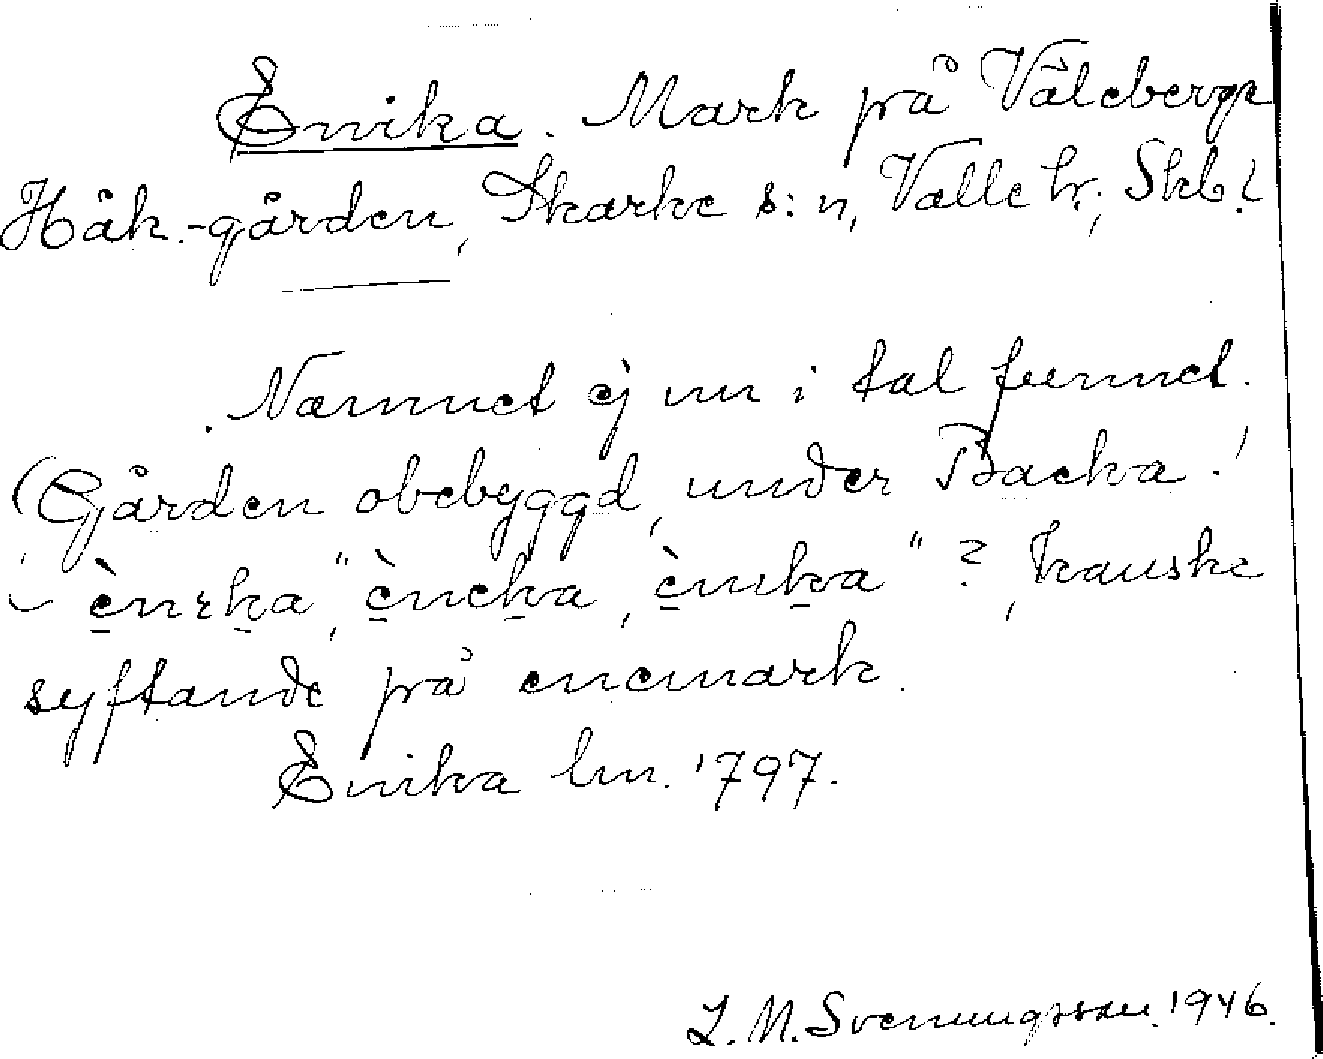 Enika. Mark på Våleberga
Håk.-gården, Skarke s:n, Valle hr., Skb.
Namnet ej nu i tal funnet.
(Gården obebyggd, under Backa.)
"ènɛka", "èneka, ènika" ? , kanske
syftande på enemark.
Enika lm. 1797.
L. M. Svenungsson. 1946.